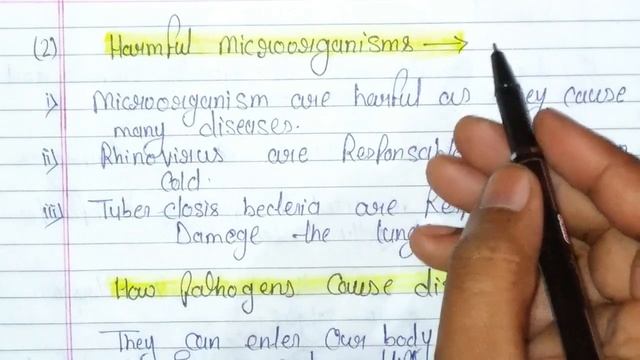 (2) Harmful Microorganisms →
i) Microorganism are harful as they cause
many diseases.
ii) Rhinovirus are Responsable
Cold.
iii) Tuber closis becteria are
Damege the lung
How Pathogens cause
They can enter our body